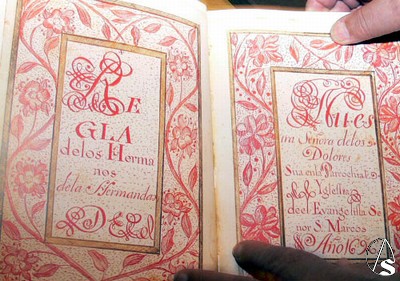 RE
GLA
delos Herma
nos
dela Hermandad
D
Nues
tra Señora delos
Dolores
Sita enla Parrochial
Yglesia
de el Evangelista Se
ñor S. Marcos
Año 169